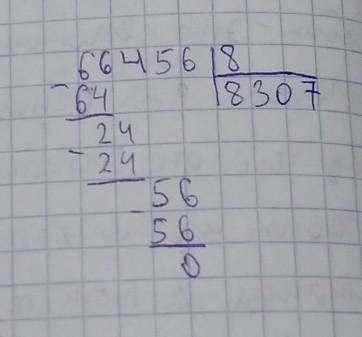 66456 8
- 64 8307
24
- 24
56
- 56
0